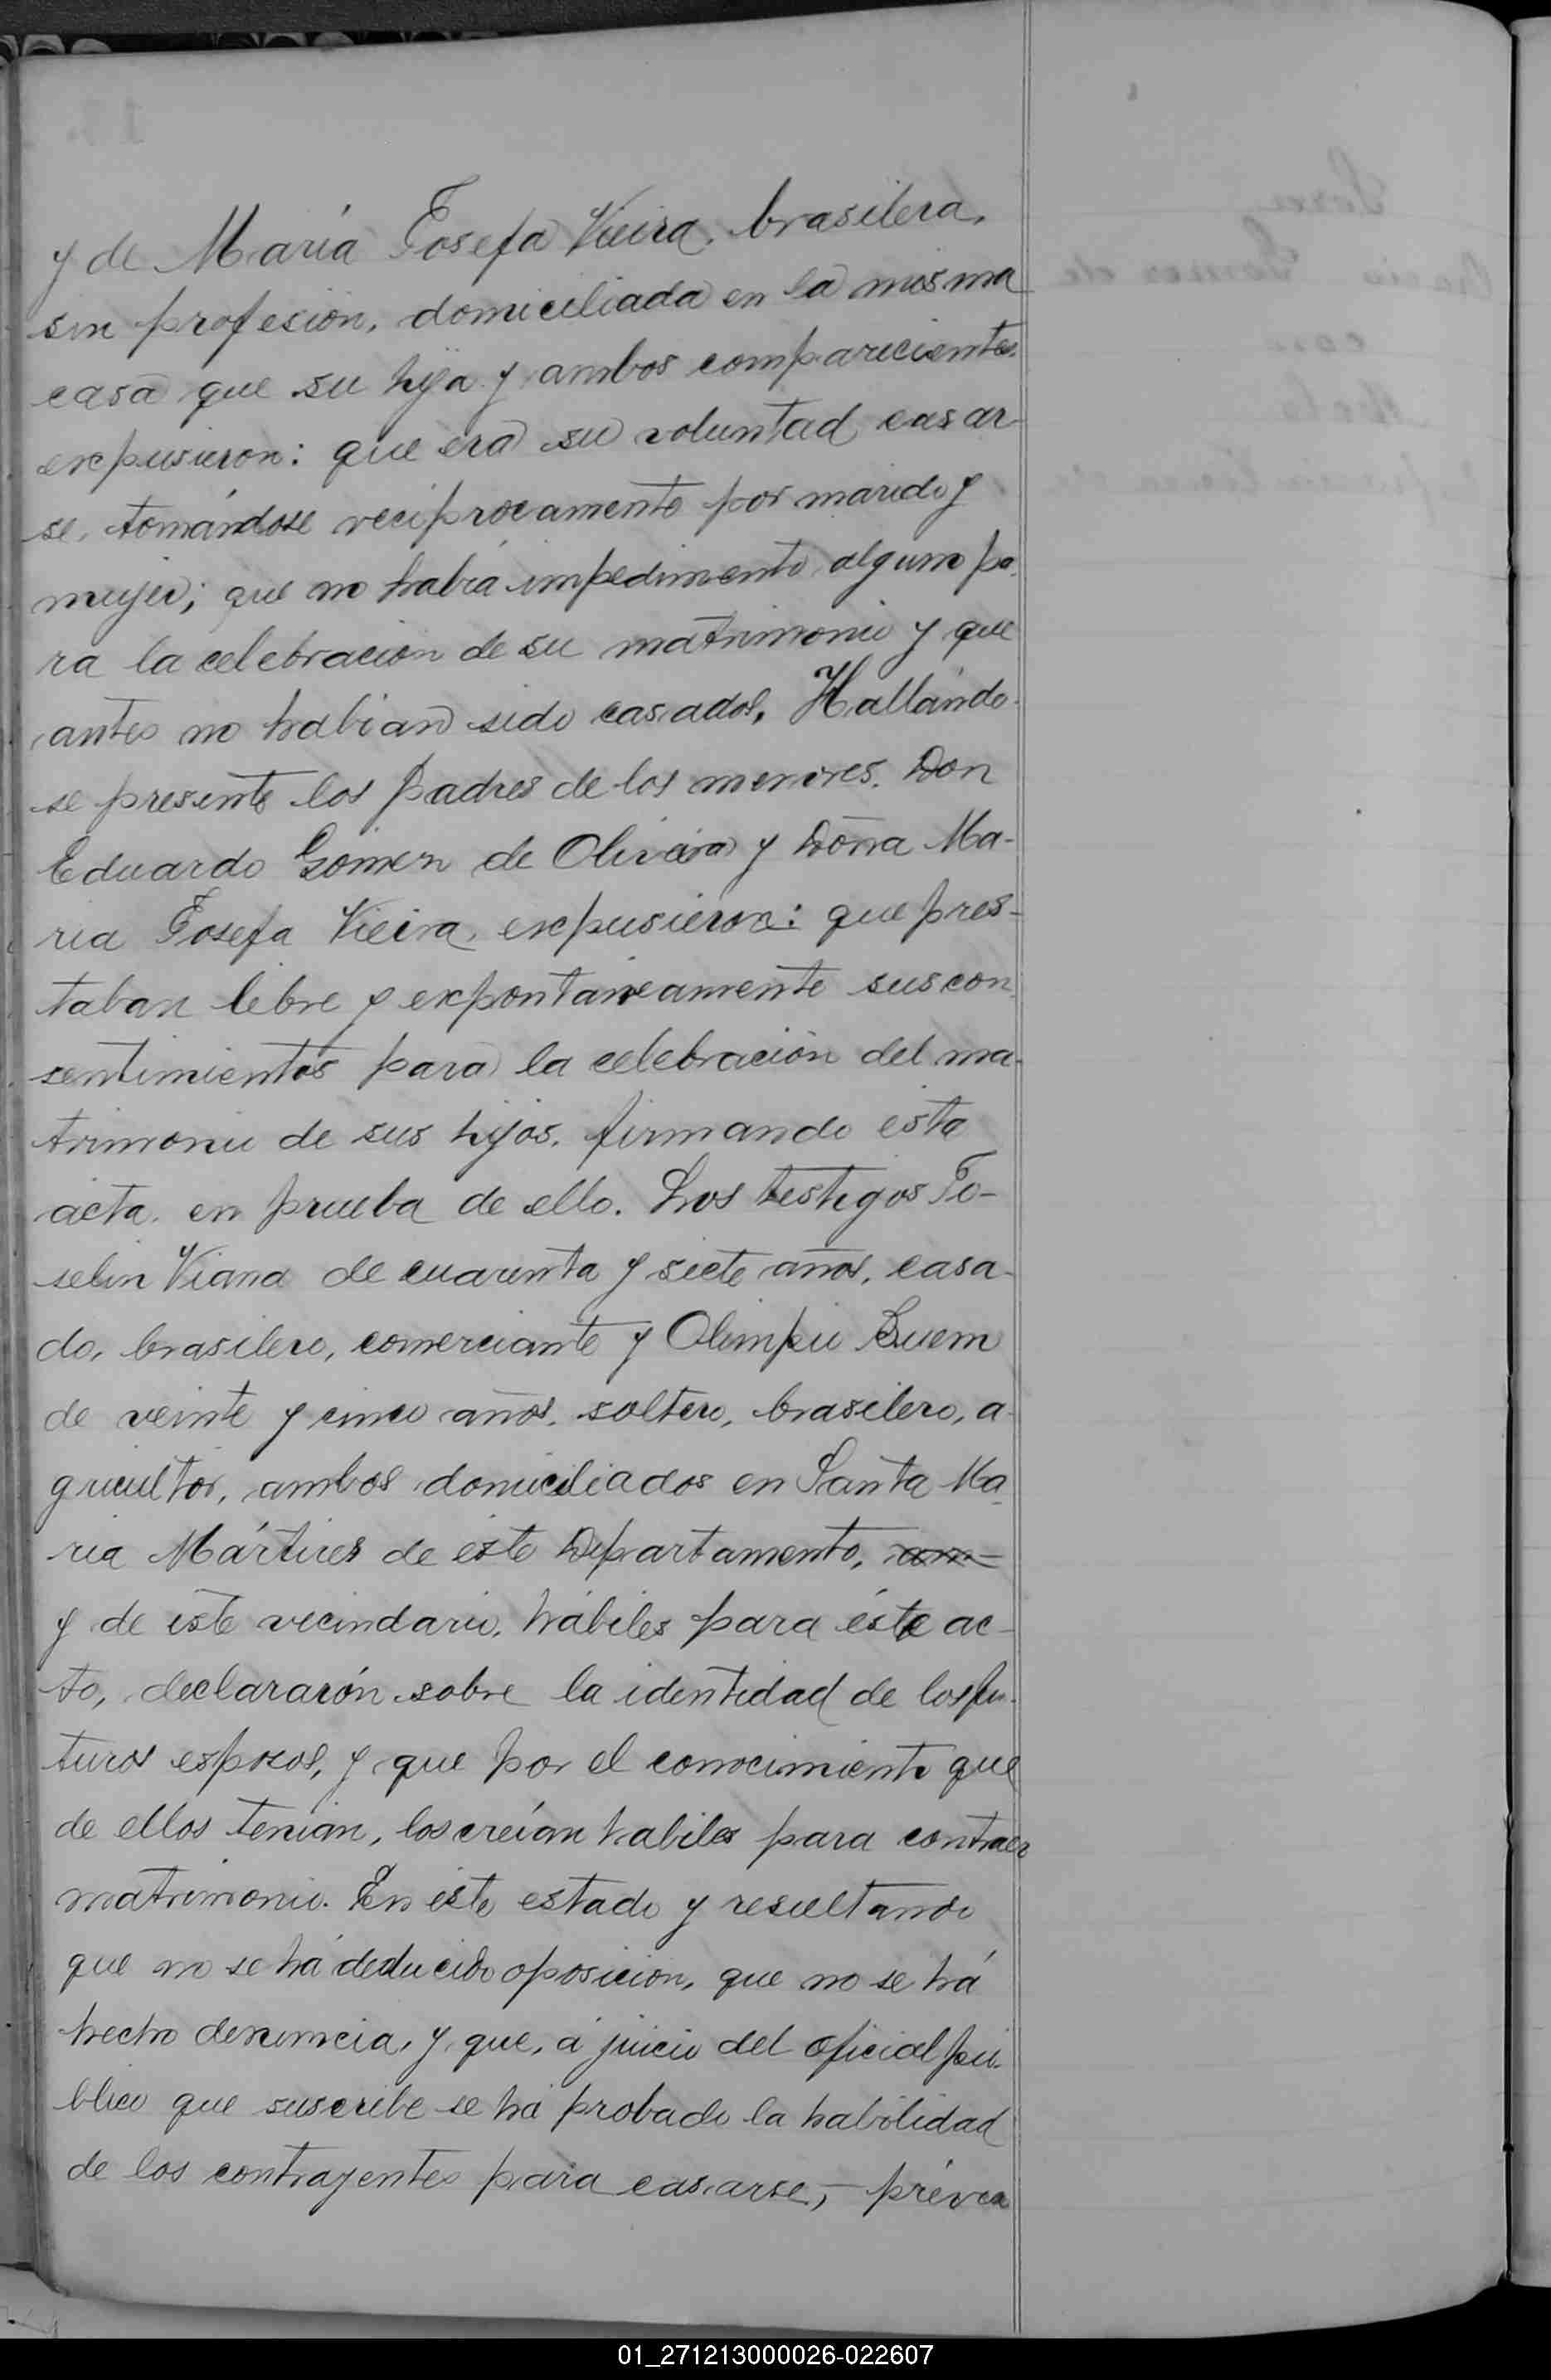 y de María Josefa Vieira, brasilera,
sin profesión, domiciliada en la misma
casa que su hija y ambos comparecientes
expusieron: que era su voluntad casar-
se, tomándose reciprocamente por marido y
mujer; que no habia impedimento alguno pa-
ra la celebracion de su matrimonio y que
antes no habian sido casados, Hallándo-
se presente los padres de los menores. Don
Eduardo Gómez de Oliveira y Doña Ma-
ria Josefa Vieira, expusieron: que pres-
taban libre y expontaneamente sus con-
sentimientos para la celebración del ma-
trimonio de sus hijos, firmando esta
acta, en prueba de ello. Los testigos Jo-
selin Viana de cuarenta y siete años, casa-
do, brasilero, comerciante y Olimpio Buem
de veinte y cinco años, soltero, brasilero, a-
gricultor, ambos domiciliados en Santa Ma-
ria Mártires de éste Departamento, am
y de éste vecindario, hábiles para éste ac-
to, declararón sobre la identidad de los fu-
turos esposos, y que por el conocimiento que
de ellos tenian, los creían habiles para contraer
matrimonio. En éste estado y resultando
que no se há deducido oposicion, que no se há
hecho denuncia, y que, á juicio del oficial pú-
blico que suscribe se há probado la habilidad
de los contrayentes para casarse, - prévia
01_271213000026-022607